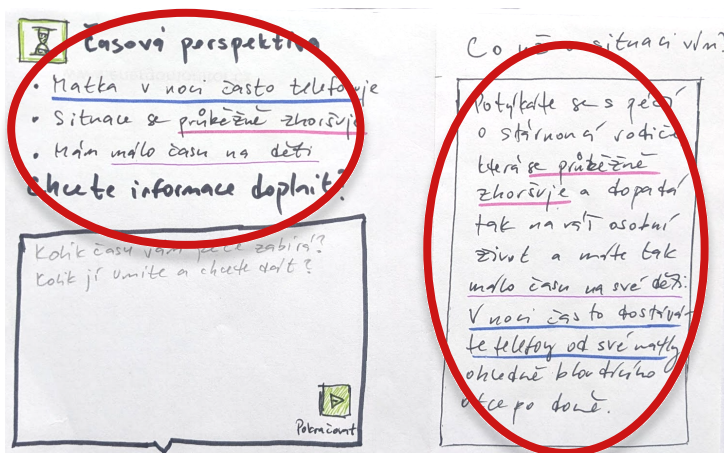 Časová perspektiva
• Matka v noci často telefonuje
• Situace se průběžně zhoršuje
• Mám málo času na děti
Chcete informace doplnit?
Kolik času vám péče zabírá?
Kolik jí umíte a chcete dát?
Pokračovat
Co už o situaci vím?
Potýkáte se s péčí
o stárnoucí rodiče
která se průběžně
zhoršuje a dopadá
tak na váš osobní
život a máte tak
málo času na své děti.
V noci často dostává-
te telefony od své matky
ohledně bloudícího
otce po domě.